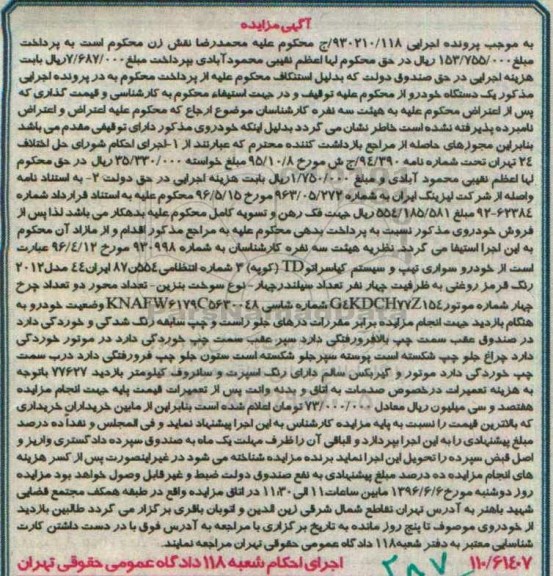 آگهی مزایده
به موجب پرونده اجرایی ۹۳۰۲۱۰/۱۱۸/ج محکوم علیه محمدرضا نقش زن محکوم است به پرداخت
مبلغ ۱۵۳/۷۵۵/۰۰۰ ریال در حق محکوم لها اعظم نقیبی محمودآبادی بپرداخت مبلغ ۷/۶۸۷/۰۰۰ ریال بابت
هزینه اجرایی در حق صندوق دولت که بدلیل استنکاف محکوم علیه از پرداخت محکوم به در پرونده اجرایی
مذکور یک دستگاه خودرو از محکوم علیه توقیف و در جهت استیفاء محکوم به کارشناسی و قیمت گذاری که
پس از اعتراض محکوم علیه به هیئت سه نفره کارشناسان موضوع ارجاع که محکوم علیه اعتراض و اعتراض
نامبرده پذیرفته نشده است خاطر نشان می گردد بدلیل اینکه خودروی مذکور دارای توقیفی مقدم می باشد
بنابراین مجوزهای حاصله از مراجع بازداشت کننده محترم که عبارتند از ۱-اجرای احکام شورای حل اختلاف
۲۴ تهران تحت شماره نامه ۹۴/۳۹۰/ج ش مورخ ۹۵/۱۰/۸ مبلغ خواسته ۳۵/۳۳۰/۰۰۰ ریال در حق محکوم
لها اعظم نقیبی محمود آبادی و مبلغ ۱/۷۵۰/۰۰۰ ریال بابت هزینه اجرایی در حق دولت ۲- به استناد نامه
واصله از شرکت لیزینگ ایران به شماره ۹۶۳/۰۵/۲۷۲ مورخ ۹۶/۵/۱۵ محکوم علیه به استناد قرارداد شماره
۹۲-۶۲۳۸۴ مبلغ ۵۵۴/۱۸۵/۵۸۱ ریال جهت فک رهن و تسویه کامل محکوم علیه بدهکار می باشد لذا پس از
فروش خودروی مذکور نسبت به پرداخت بدهی محکوم علیه به مراجع مذکور اقدام و از مازاد آن محکوم
به این اجرا استیفا می گردد. نظریه هیئت سه نفره کارشناسان به شماره ۹۳۰۹۹۸ مورخ ۹۶/۴/۱۲ عبارت
است از خودرو سواری تیپ و سیستم کیاسراتو TD (کوپه) ۳ شماره انتظامی ۵۵۴ن۸۷ ایران ۴۴ مدل ۲۰۱۲
رنگ قرمز روغنی به ظرفیت چهار نفر تعداد سیلندر چهار-نوع سوخت بنزین-تعداد محور دو تعداد چرخ
چهار شماره موتور G4KDCH۷۷Z۱۵۴ شماره شاسی KNAFW۶۱۷۹C۵۶۳۰۰۴۸ وضعیت خودرو به
هنگام بازدید جهت انجام مزایده برابر مقررات درهای جلو راست و چپ سابقه رنگ شدگی و خوردگی دارد
در صندوق عقب سمت چپ بالافرورفتگی دارد سپر عقب سمت چپ خوردگی دارد در موتور خوردگی
دارد چراغ جلو چپ شکسته است پوسته سپر جلو شکسته است ستون جلو چپ فرورفتگی دارد درب سمت
چپ خوردگی دارد موتور و گیربکس سالم دارای رینگ اسپرت و سانروف کیلومتر بازدید ۷۷۶۲۷ باتوجه
به هزینه تعمیرات درخصوص صدمات به اتاق و بدنه وانت پس از تعمیرات قیمت پایه جهت انجام مزایده
هفتصد و سی میلیون ریال معادل ۷۳/۰۰۰/۰۰۰ تومان اعلام شده است بنابراین از مابین خریداران خریداری
که بالاترین قیمت را نسبت به پایه مزایده کارشناس به این اجرا پیشنهاد نماید و فی المجلس و نقداً ده درصد
مبلغ پیشنهادی را به این اجرا بپردازد و الباقی آن را ظرف مهلت یک ماه به صندوق سپرده دادگستری واریز و
اصل قبض سپرده را تحویل این اجرا نماید برنده مزایده شناخته می شود در غیراینصورت پس از کسر هزینه
های انجام مزایده ده درصد مبلغ پیشنهادی به نفع صندوق دولت ضبط و غیرقابل وصول خواهد بود مزایده
روز دوشنبه مورخ ۱۳۹۶/۶/۶ مابین ساعات ۱۱ الی ۱۱:۳۰ در اتاق مزایده واقع در طبقه همکف مجتمع قضایی
شهید باهنر به آدرس تهران تقاطع شمال شرقی زین الدین و اتوبان باقری برگزار می گردد طالبین بازدید
از خودروی موصوف تا پنج روز مانده به تاریخ برگزاری با مراجعه به آدرس فوق با در دست داشتن کارت
شناسایی معتبر به دفتر شعبه ۱۱۸ دادگاه عمومی حقوقی تهران مراجعه نمایند.
۱۱۰/۶۱۴۰۷ اجرای احکام شعبه ۱۱۸ دادگاه عمومی حقوقی تهران
۲۸۷